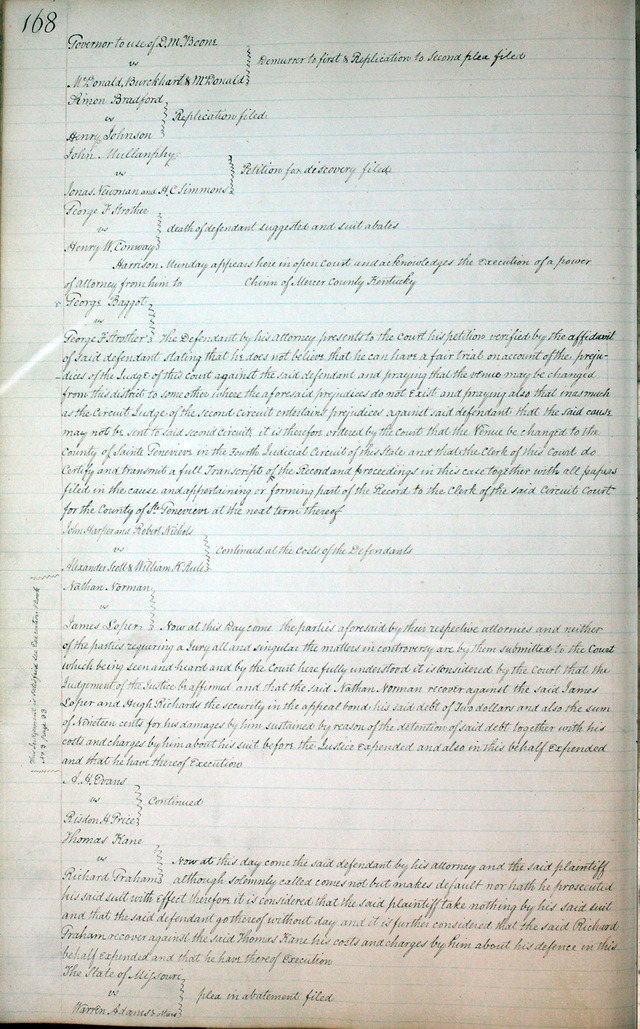 168
Governor to use of D. M. Boone
vs
Demurrer to first & Replication to second plea filed
McDonald, Burckhart & McDonald
Simon Bradford
vs
Replication filed
Henry Johnson
John Mullanphy
vs
Petition for discovery filed
Jonas Newman and H. C. Simmons
George F Strother
vs
death of defendant suggested and suit abates
Henry W. Conway
Harrison Munday appears here in open court and acknowledges the execution of a power
of attorney from him to Chinn of Mercer County Kentucky
George Baggot
vs
George F Strother The Defendant by his attorney presents to the Court his petition verified by the affidavit
of said defendant stating that he does not believe that he can have a fair trial on account of the preju-
dices of the Judge of this court against the said defendant and praying that the venue may be changed
from this district to some other where the aforesaid prejudices do not Exist and praying also that inasmuch
as the Circuit Judge of the second circuit entertains prejudices against said defendant that the said cause
may not be sent to said second circuit, it is therefore ordered by the Court that the Venue be changed to the
County of Saint Genevieve in the Fourth Judicial Circuit of this State and that the Clerk of this Court do
Certify and transmit a full Transcript of the Record and proceedings in this case together with all papers
filed in the cause and appertaining or forming part of the Record to the Clerk of the said Circuit Court
for the County of St. Genevieve at the next term thereof
John Harper and Robert Nichols
vs
Continued at the Costs of the Defendants
Alexander Scott & William K Rule
Nathan Norman
vs
James Loper Now at this Day come the parties aforesaid by their respective attornies and neither
of the parties requiring a Jury all and singular the matters in controversy are by them submitted to the Court
which being seen and heard and by the Court here fully understood it is considered by the Court that the
Judgement of the Justice be affirmed and that the said Nathan Norman recover against the said James
Loper and Hugh Richards the security in the appeal bond his said debt of Two dollars and also the sum
of Nineteen cents for his damages by him sustained by reason of the detention of said debt together with his
costs and charges by him about his suit before the Justice Expended and also in this behalf Expended
and that he have thereof Execution
This Judgement is satisfied see Execution Book
A. H. Evans
vs
Continued
Risdon H Price
Thomas Kane
vs
Now at this day come the said defendant by his attorney and the said plaintiff
Richard Graham although solemnly called comes not but makes default nor hath he prosecuted
his said suit with effect therefore it is considered that the said plaintiff take nothing by his said suit
and that the said defendant go thereof without day and it is further considered that the said Richard
Graham recover against the said Thomas Kane his costs and charges by him about his defence in this
behalf Expended and that he have thereof Execution
The State of Missouri
vs
plea in abatement filed
Warren Adams &